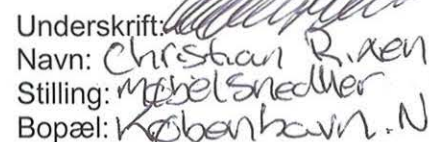 Underskrift:
Navn: Christian Rixen
Stilling: Møbelsnedker
Bopæl: København. N